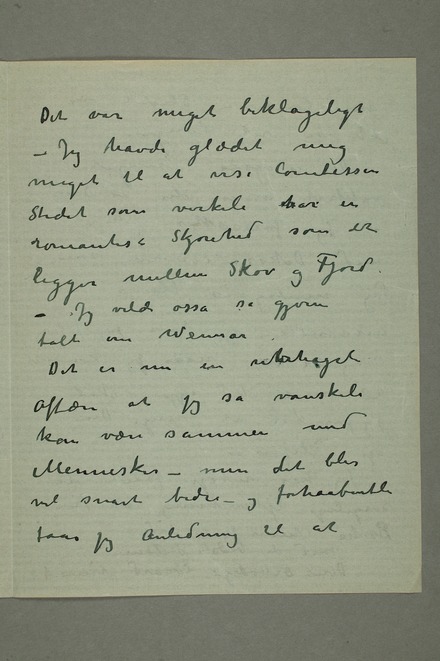 Det var meget beklageligt
– Jeg havde glædet mig
meget til at vise Comtessen
Stedet som virkelig har en
romantisk Skjønhed som det
ligger mellem Skov og Fjord.
– Jeg vilde ossa så gjerne
talt om Weimar.
Det er nu en
at jeg så vanskelig
kan være sammen med
Mennesker – men det blir
vel snart bedre – og forhaabentlig
faar jeg Anledning til at